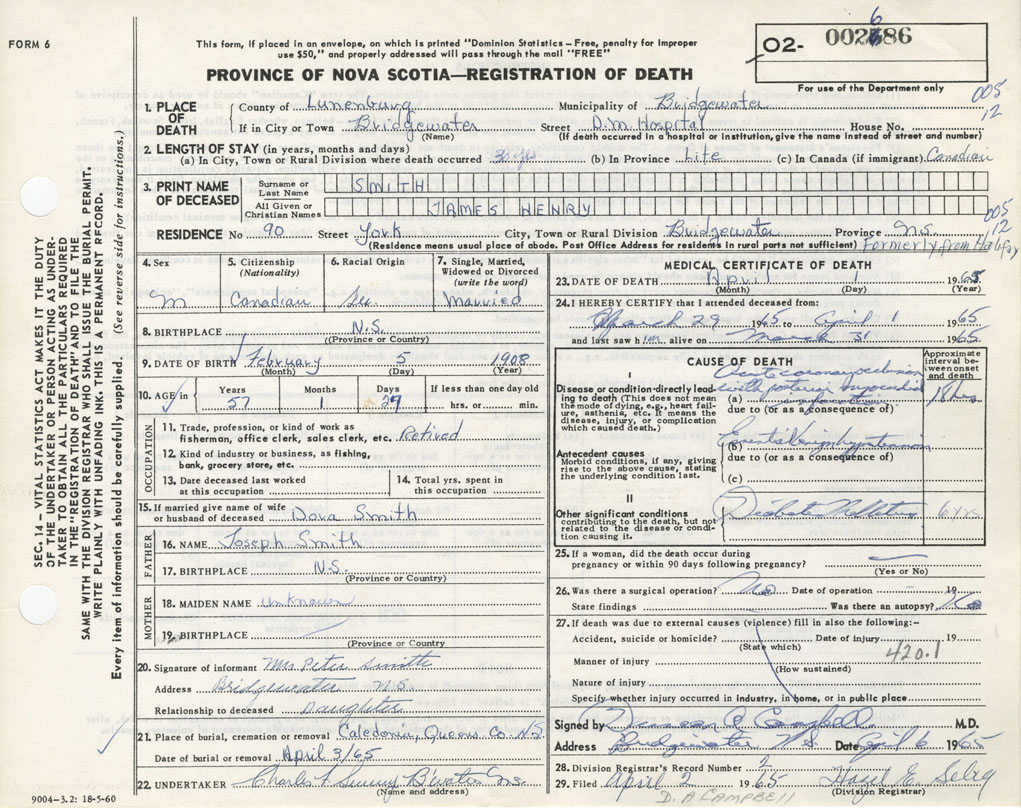 FORM 6
This form, if placed in an envelope, on which is printed "Dominion Statistics – Free, penalty for improper
use $50," and properly addressed will pass through the mail "FREE"
PROVINCE OF NOVA SCOTIA—REGISTRATION OF DEATH
02- 002686
6
For use of the Department only
005
12
1. PLACE OF DEATH
County of Lunenburg Municipality of Bridgewater
If in City or Town Bridgewater Street D.M. Hospital House No.
(Name) (If death occurred in a hospital or institution, give the name instead of street and number)
2. LENGTH OF STAY (in years, months and days)
(a) In City, Town or Rural Division where death occurred (b) In Province Life (c) In Canada (if immigrant) Canadian
3. PRINT NAME OF DECEASED
Surname or Last Name SMITH
All Given or Christian Names JAMES HENRY
005
12
RESIDENCE No 90 Street York City, Town or Rural Division Bridgewater Province N.S.
(Residence means usual place of abode. Post Office Address for residents in rural parts not sufficient) Formerly from Halifax
4. Sex M
5. Citizenship (Nationality) Canadian
6. Racial Origin
7. Single, Married, Widowed or Divorced (write the word) Married
8. BIRTHPLACE N.S.
(Province or Country)
9. DATE OF BIRTH February 5 1908
(Month) (Day) (Year)
10. AGE in Years 57 Months 1 Days If less than one day old hrs. or min.
OCCUPATION
11. Trade, profession, or kind of work as
fisherman, office clerk, sales clerk, etc. Retired
12. Kind of industry or business, as fishing,
bank, grocery store, etc.
13. Date deceased last worked
at this occupation
14. Total yrs. spent in
this occupation
15. If married give name of wife
or husband of deceased Dora Smith
FATHER
16. NAME Joseph Smith
17. BIRTHPLACE N.S.
(Province or Country)
MOTHER
18. MAIDEN NAME Unknown
19. BIRTHPLACE
(Province or Country)
20. Signature of informant Mrs Peter Smith
Address Bridgewater N S
Relationship to deceased Daughter
21. Place of burial, cremation or removal Caledonia, Queens Co. N.S.
Date of burial or removal April 3/65
22. UNDERTAKER Charles B'water N.S.
(Name and address)
9004-3.2: 18-5-60
MEDICAL CERTIFICATE OF DEATH
23. DATE OF DEATH April 1 1965
(Month) (Day) (Year)
24. I HEREBY CERTIFY that I attended deceased from:
March 29 1965 to April 1 1965
and last saw him alive on March 31 1965
CAUSE OF DEATH
Approximate interval between onset and death
I
Disease or condition directly leading to death (This does not mean the mode of dying, e.g., heart failure, asthenia, etc. It means the disease, injury, or complication which caused death.)
Acute coronary occlusion
with posterior myocardial
(a) infarction 18 hrs
due to (or as a consequence of)
Antecedent causes
Morbid conditions, if any, giving rise to the above cause, stating the underlying condition last.
(b) Essential benign hypertension
due to (or as a consequence of)
(c)
II
Other significant conditions
contributing to the death, but not related to the disease or condition causing it.
Diabetes Mellitus 6 yrs
25. If a woman, did the death occur during
pregnancy or within 90 days following pregnancy?
(Yes or No)
26. Was there a surgical operation? No Date of operation 19
State findings Was there an autopsy? No
27. If death was due to external causes (violence) fill in also the following:–
Accident, suicide or homicide? Date of injury 19
(State which)
420.1
Manner of injury
(How sustained)
Nature of injury
Specify whether injury occurred in industry, in home, or in public place
Signed by Duncan A Campbell M.D.
Address Bridgewater N.S. Date April 6 1965
28. Division Registrar's Record Number 2
29. Filed April 2 1965 Hazel E. Selig
(Division Registrar)
D. A CAMPBELL
SEC. 14 – VITAL STATISTICS ACT MAKES IT THE DUTY
OF THE UNDERTAKER OR PERSON ACTING AS UNDER-
TAKER TO OBTAIN ALL THE PARTICULARS REQUIRED
IN THE "REGISTRATION OF DEATH" AND TO FILE THE
SAME WITH THE DIVISION REGISTRAR WHO SHALL ISSUE THE BURIAL PERMIT.
WRITE PLAINLY WITH UNFADING INK. THIS IS A PERMANENT RECORD.
Every item of information should be carefully supplied. (See reverse side for instructions.)